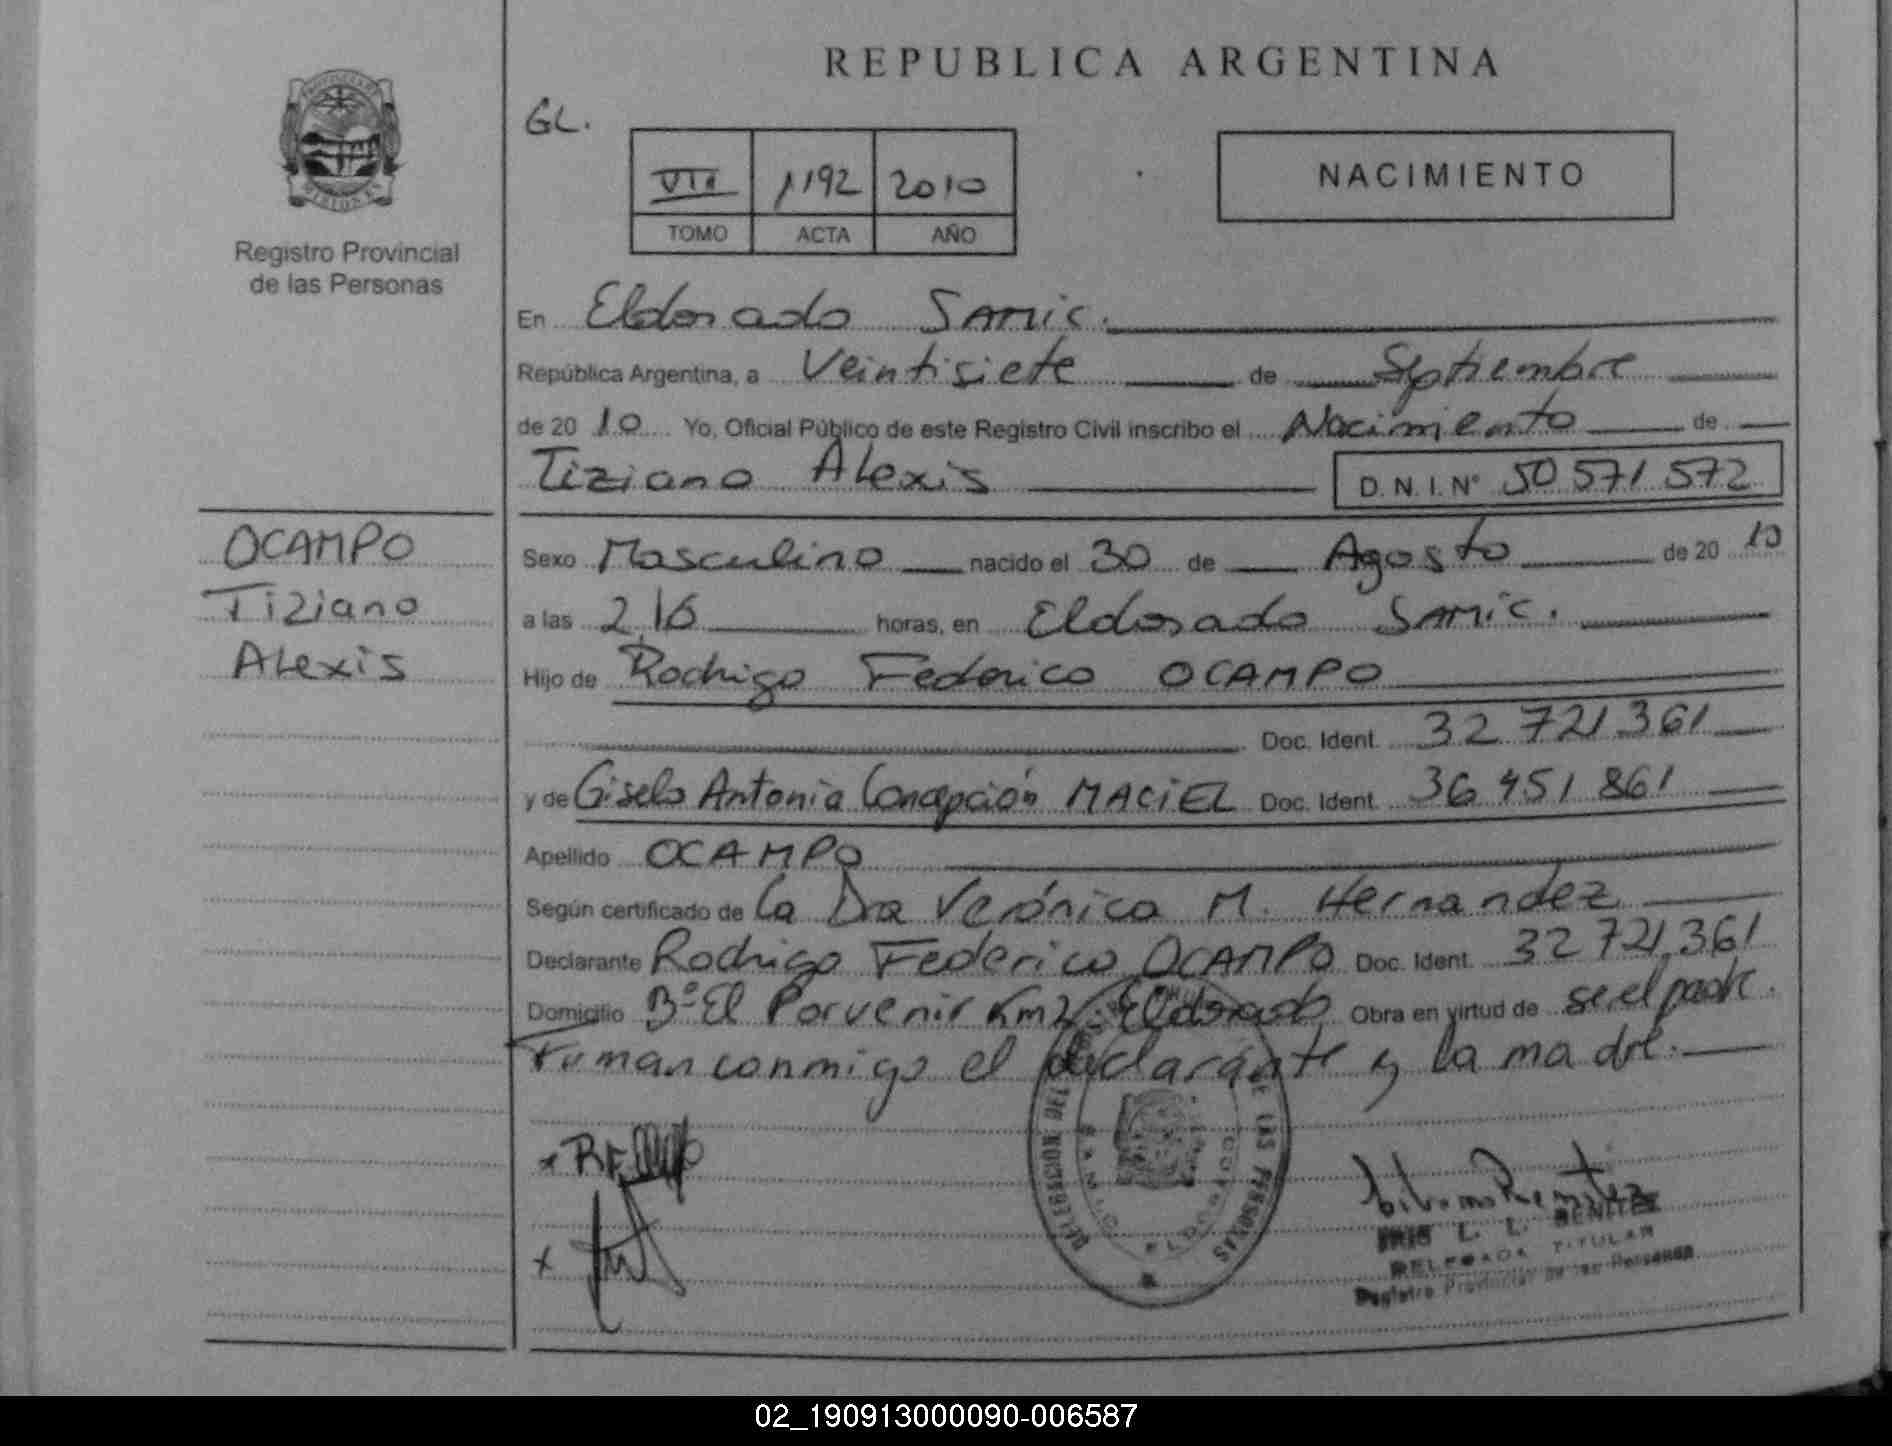 REPUBLICA ARGENTINA
GL.
VIII 1192 2010
TOMO ACTA AÑO
NACIMIENTO
Registro Provincial
de las Personas
En Eldorado SAMIC.
República Argentina, a Veintisiete de Septiembre
de 2010 Yo, Oficial Público de este Registro Civil inscribo el Nacimiento de
Tiziano Alexis D.N.I. Nº 50 571 572
OCAMPO
Tiziano
Alexis
Sexo Masculino nacido el 30 de Agosto de 2010
a las 2,16 horas, en Eldorado SAMIC.
Hijo de Rodrigo Federico OCAMPO
Doc. Ident. 32 721 361
y de Gisela Antonia Concepción MACIEL Doc. Ident. 36 451 861
Apellido OCAMPO
Según certificado de La Dra Verónica M. Hernandez
Declarante Rodrigo Federico OCAMPO Doc. Ident. 32 721 361
Domicilio Bº El Porvenir Km 2 Eldorado Obra en virtud de ser el padre.
Firman conmigo el declarante y la madre.
DELEGACION DEL DE LAS PERSONAS
IRIS L. L. BENITEZ
DELEGADA TITULAR
Registro Provincial de las Personas
02_190913000090-006587